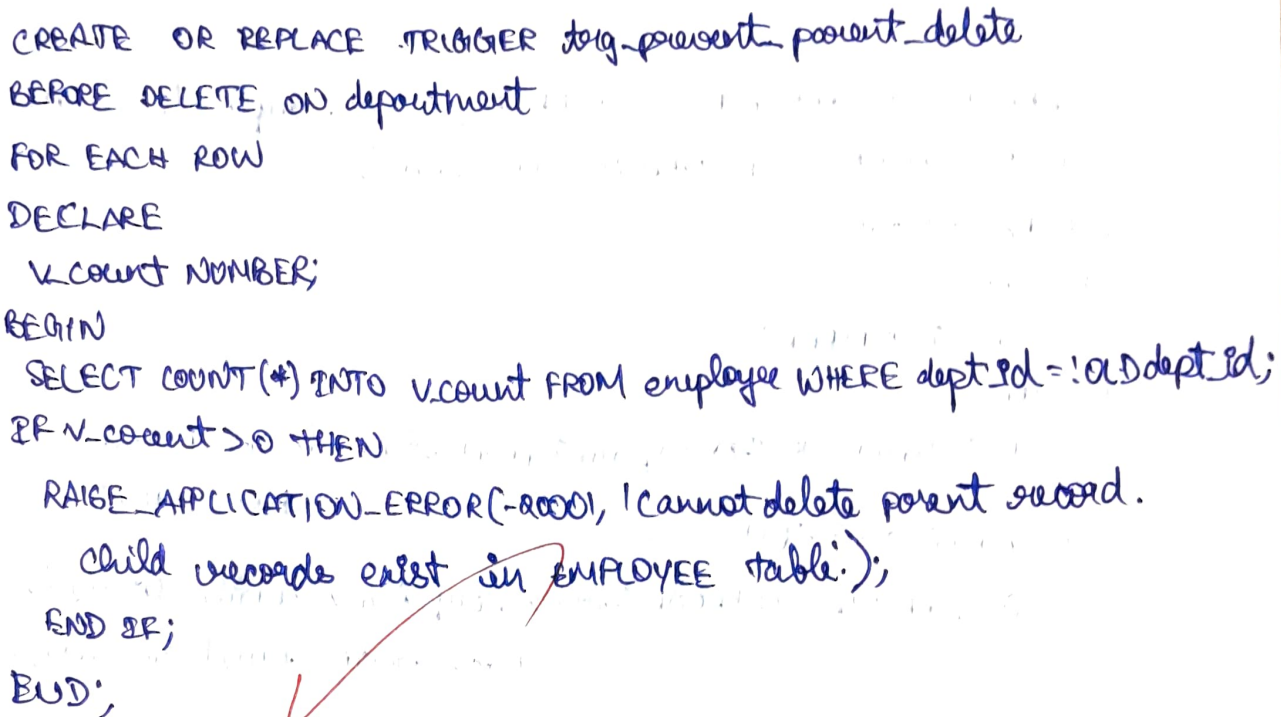 CREATE OR REPLACE TRIGGER trg_prevent_parent_delete
BEFORE DELETE ON department
FOR EACH ROW
DECLARE
v_count NUMBER;
BEGIN
SELECT COUNT(*) INTO v_count FROM employee WHERE dept_id = :OLD dept_id;
IF v_count > 0 THEN
RAISE_APPLICATION_ERROR(-20001, 'Cannot delete parent record.
child records exist in EMPLOYEE table.');
END IF;
END;